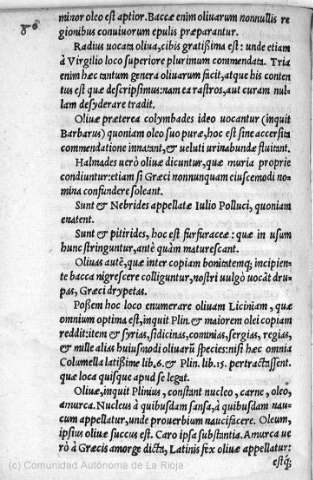 minor oleo est aptior. Baccæ enim oliuarum nonnullis re
gionibus conuiuorum epulis præparantur.
Radius uocata oliua, cibis gratißima est: unde etiam
à Virgilio loco superiore plurimum commendata. Tria
enim hæc tantum genera oliuarum facit, atque his conten
tus est quæ descripsimus: nam ea rastros, aut curam nul-
lam desyderare tradit.
Oliuæ præterea colymbades ideo uocantur (inquit
Barbarus) quoniam oleo suo puræ, hoc est sine accersita
commendatione innatant, & ueluti urinabundæ fluitant.
Halmades uerò oliuæ dicuntur, quæ muria proprie
condiuntur: etiam si Græci nonnunquam eiuscemodi no-
mina confundere soleant.
Sunt & Nebrides appellatæ Iulio Polluci, quoniam
enatent.
Sunt & pitirides, hoc est furfuraceæ: quæ in usum
hunc stringuntur, antè quàm maturescant.
Oliuas autē, quæ inter copiam bonitatemq; incipien-
te bacca nigrescere colliguntur, nostri uulgò uocāt dru-
pas, Græci drypetas.
Possem hoc loco enumerare oliuam Liciniam, quæ
omnium optima est, inquit Plin. & maiorem olei copiam
reddit: item & syrias, sidicinas, cominias, sergias, regias,
& mille alias huiusmodi oliuarū species: nisi hæc omnia
Columella latißime lib. 6. & Plin. lib. 15. pertractassent.
quæ loca quisque apud se legat.
Oliuæ, inquit Plinius, constant nucleo, carne, oleo,
amurca. Nucleus à quibusdam sansa, à quibusdam nau-
cum appellatur, unde prouerbium naucifacere. Oleum,
ipsius oliuæ succus est. Caro ipsa substantia. Amurca ue
rò à Græcis amorge dicta, Latinis fex oliuæ appellatur:
estq;
(c) Comunidad Autónoma de La Rioja